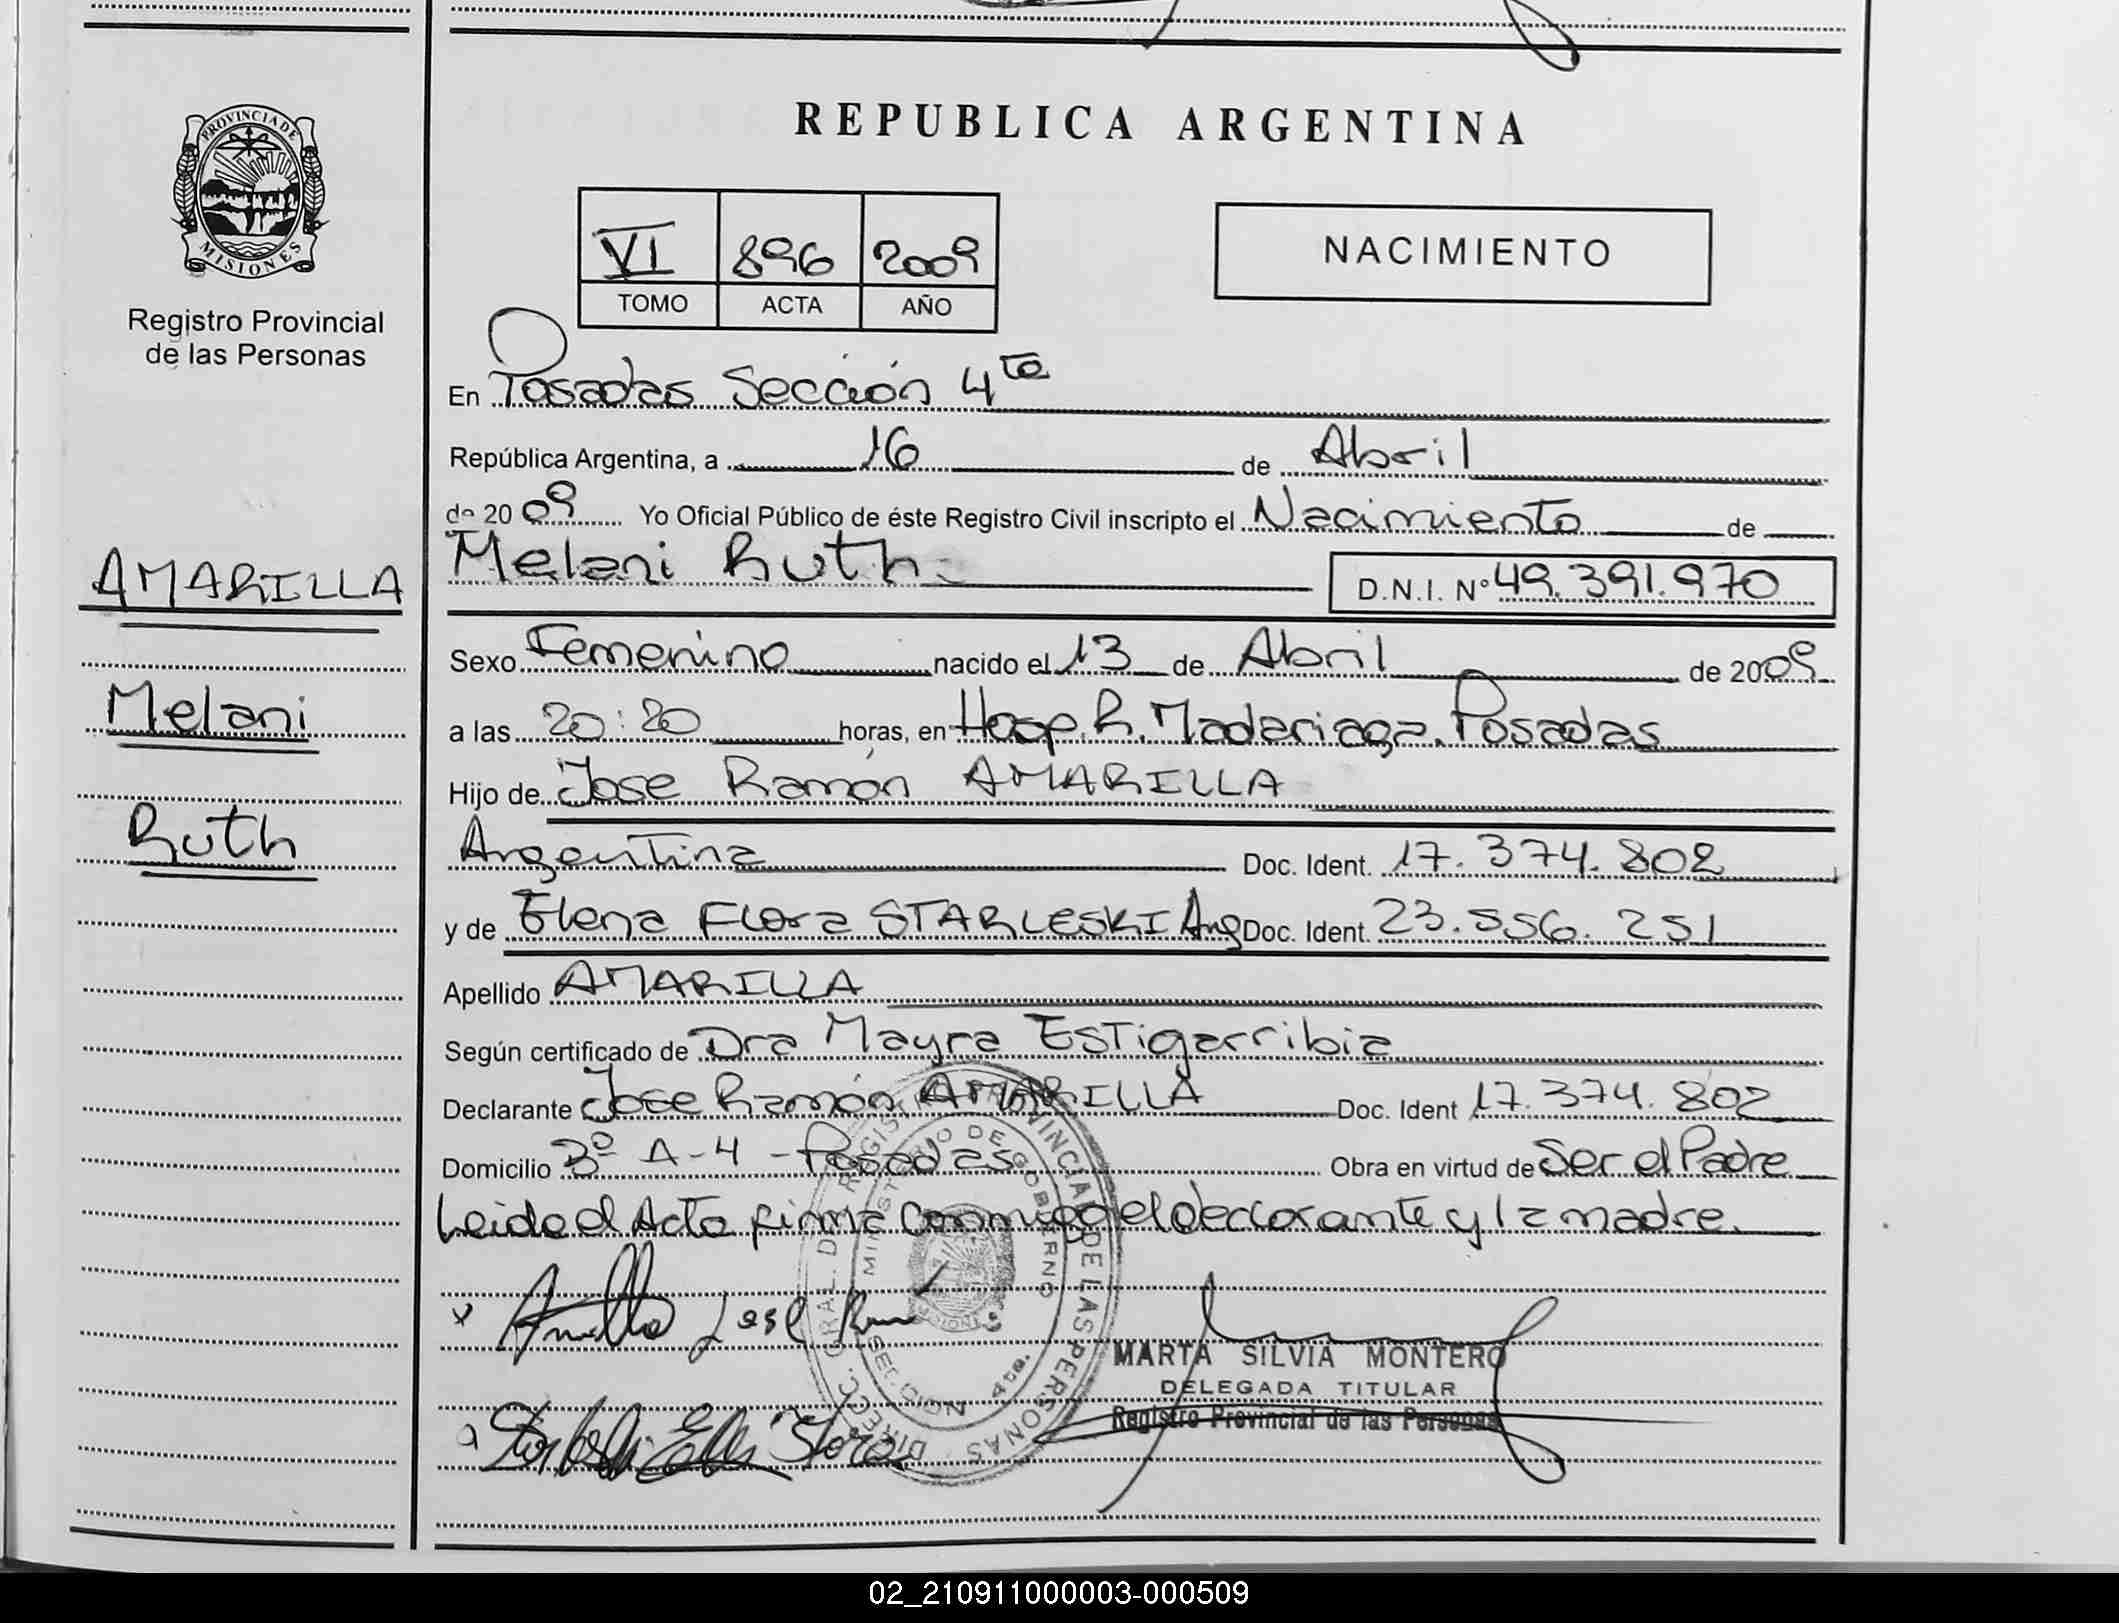 REPUBLICA ARGENTINA
PROVINCIA DE
MISIONES
Registro Provincial
de las Personas
VI 896 2009
TOMO ACTA AÑO
NACIMIENTO
En Posadas Sección 4ta
República Argentina, a 16 de Abril
de 2009 Yo Oficial Público de éste Registro Civil inscripto el Nacimiento de
Melani Ruth.
D.N.I. Nº 49.391.970
AMARILLA
Melani
Ruth
Sexo Femenino nacido el 13 de Abril de 2009
a las 20:20 horas, en Hosp. R. Madariaga. Posadas
Hijo de Jose Ramón AMARILLA
Argentina Doc. Ident. 17.374.802
y de Elena Flora STARLESKI Arg Doc. Ident. 23.556.251
Apellido AMARILLA
Según certificado de Dra Mayra Estigarribia
Declarante Jose Ramón AMARILLA Doc. Ident 17.374.802
Domicilio Bº A-4 - Posadas Obra en virtud de Ser el Padre
Leida el Acta firma conmigo el declarante y la madre.
DIRECC. GRAL. DE REGISTRO PROVINCIAL DE LAS PERSONAS
MINISTERIO DE GOBIERNO
SECCION 4ta.
MARTA SILVIA MONTERO
DELEGADA TITULAR
Registro Provincial de las Personas
02_210911000003-000509